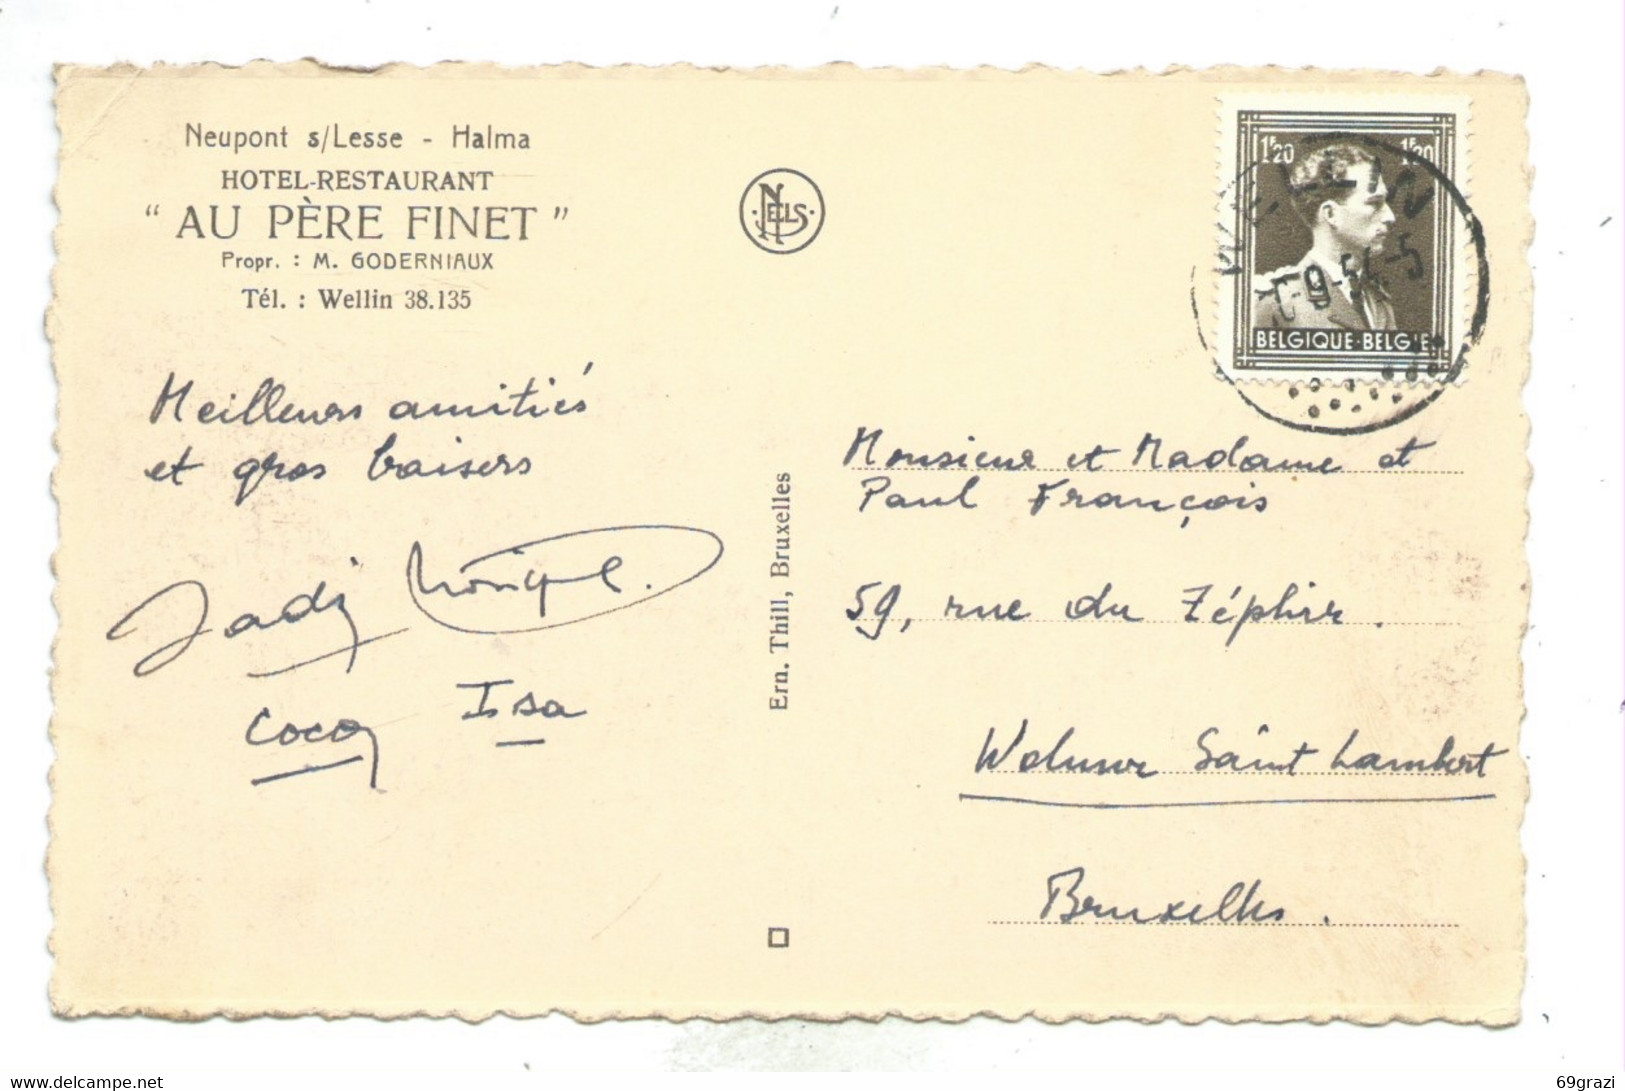 Neupont s/Lesse - Halma
HOTEL-RESTAURANT
" AU PÈRE FINET "
Propr. : M. GODERNIAUX
Tél. : Wellin 38.135
NELS
1F20 1F20
WELLIN
-9-54-5
BELGIQUE·BELGIE
Meilleurs amitiés
et gros baisers
Jadi Monique.
Coco Isa
Ern. Thill, Bruxelles
Monsieur et Madame et
Paul François
59, rue du Zéphir.
Woluwe Saint Lambert
Bruxelles.
www.delcampe.net
69grazi